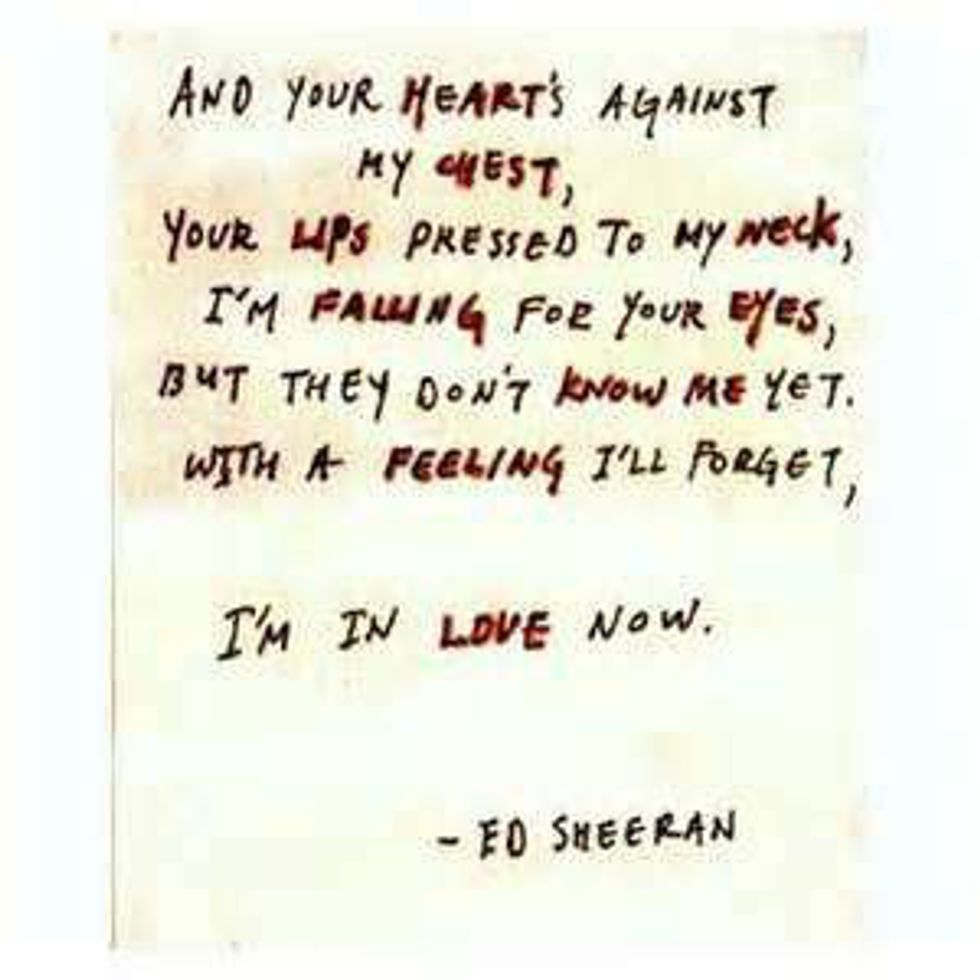 AND YOUR HEART'S AGAINST
MY CHEST,
YOUR LIPS PRESSED TO MY NECK,
I'M FALLING FOR YOUR EYES,
BUT THEY DON'T KNOW ME YET.
WITH A FEELING I'LL FORGET,
I'M IN LOVE NOW.
- ED SHEERAN